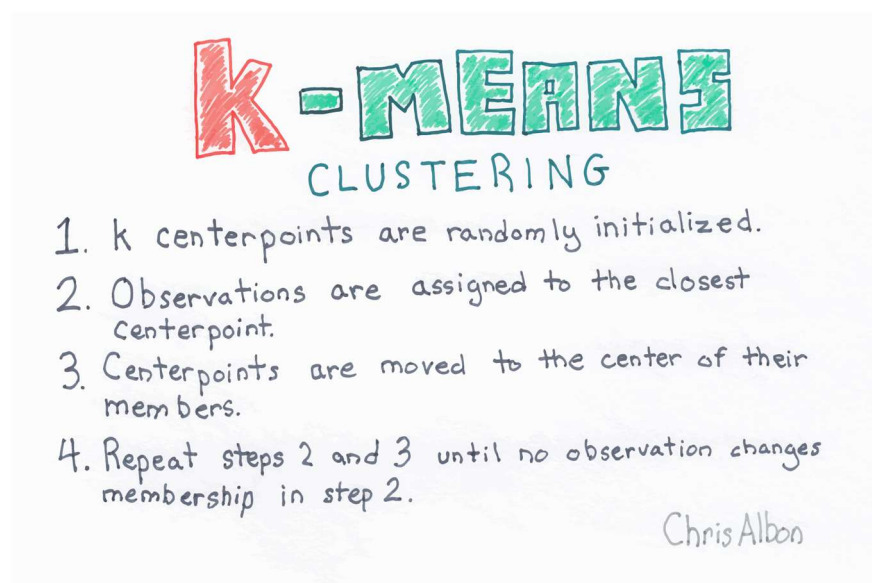 K-MEANS
CLUSTERING
1. K centerpoints are randomly initialized.
2. Observations are assigned to the closest
centerpoint.
3. Centerpoints are moved to the center of their
members.
4. Repeat steps 2 and 3 until no observation changes
membership in step 2.
Chris Albon